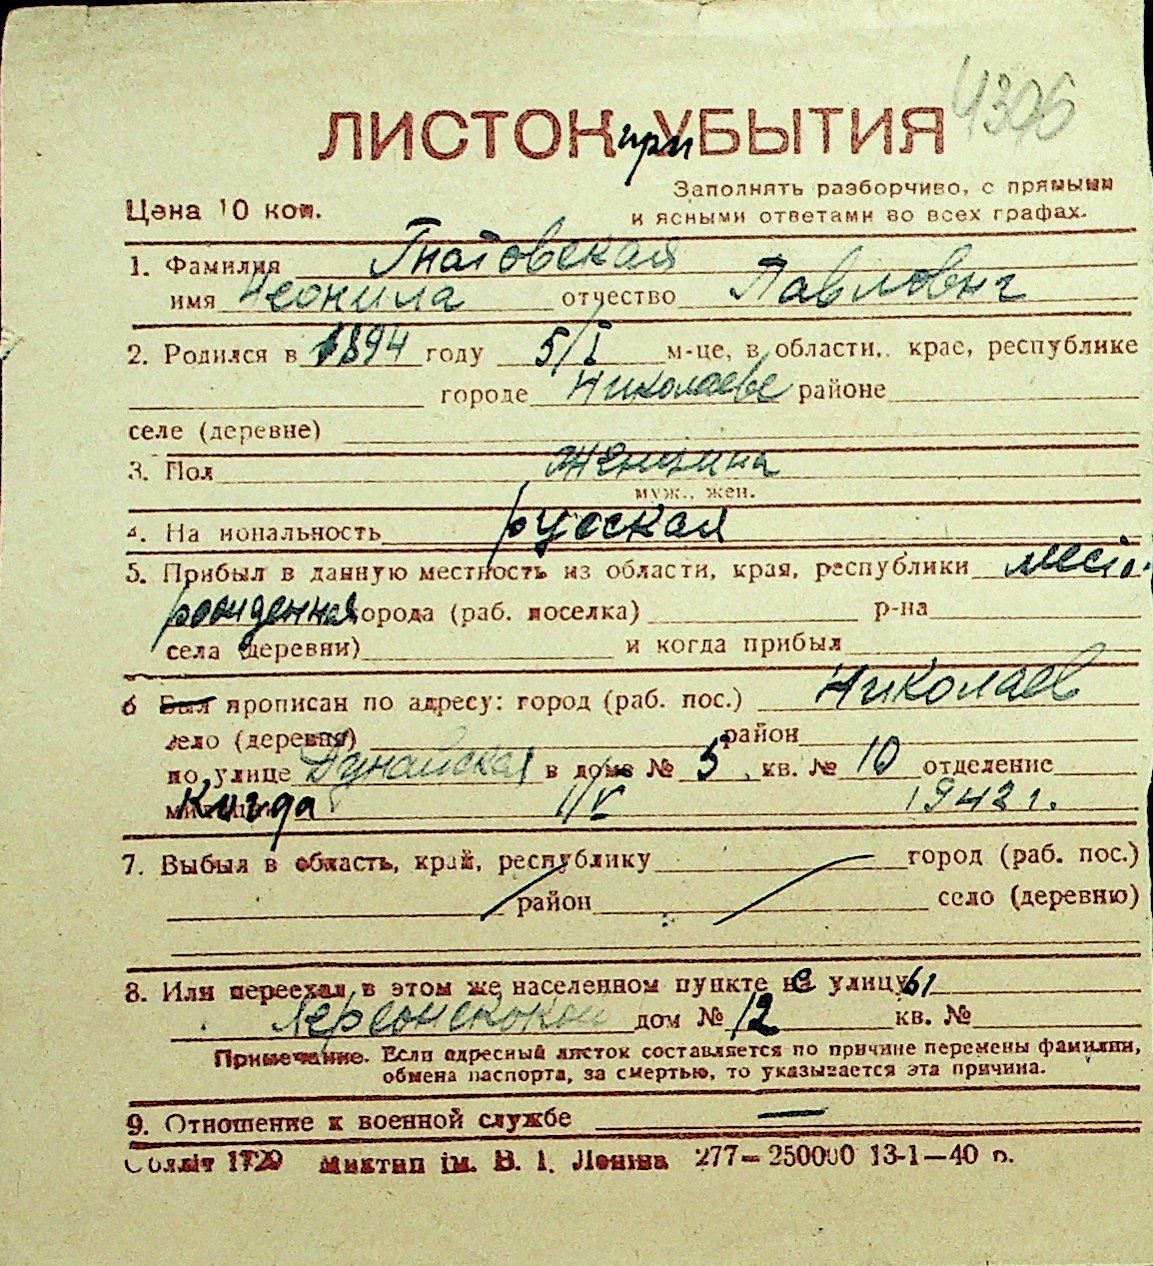 4306
ЛИСТОК при УБЫТИЯ
Цена 10 коп.
Заполнять разборчиво, с прямыми
и ясными ответами во всех графах.
1. Фамилия Гнатовская
имя Неонила отчество Павловна
2. Родился в 1894 году 5/I м-це, в области, крае, республике
городе Николаеве районе
селе (деревне)
3. Пол женщина
муж., жен.
4. На иональность русская
5. Прибыл в данную местность из области, края, республики место
рождения города (раб. поселка) р-на
села (деревни) и когда прибыл
6 Был прописан по адресу: город (раб. пос.) Николаев
село (деревня) район
по улице Дунайская в доме № 5, кв. № 10 отделение
Когда 1942 г.
7. Выбыл в область, край, республику город (раб. пос.)
район село (деревню)
8. Или переехал в этом же населенном пункте не улицу ы
Херсонской дом № 12 кв. №
Примечание. Если адресный листок составляется по причине перемены фамилии,
обмена паспорта, за смертью, то указывается эта причина.
9. Отношение к военной службе —
Облліт 1729 Миктип ім. В. І. Леніна 277—250000 13-1—40 р.